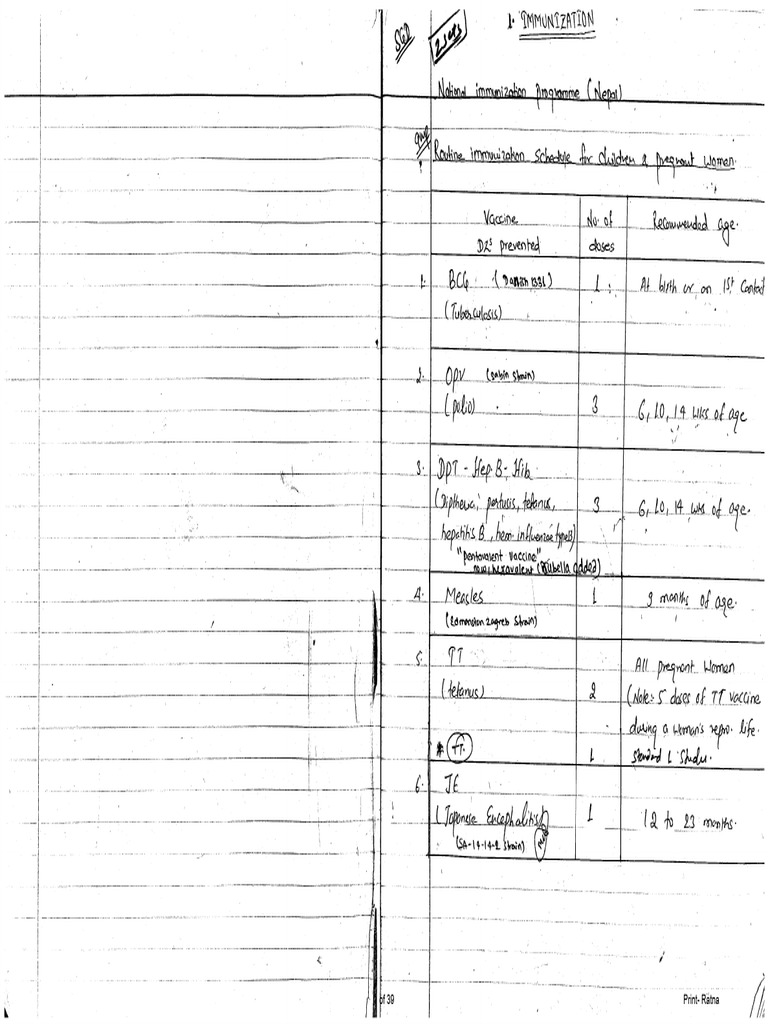 1. IMMUNIZATION
SGD
National immunization Programme (Nepal)
Routine immunization schedule for children & pregnant women.
Vaccine No. of Recommended age.
DZs prevented doses
1. BCG 1 At birth or on 1st contact
(Tuberculosis)
2. OPV (sabin strain)
(polio) 3 6, 10, 14 wks of age
3. DPT - Hep.B - Hib
(Diptheria, pertusis, tetanus, 3 6, 10, 14 wks of age.
hepatitis B, hem. influenzae type B)
"pentavalent vaccine"
now hexavalent (Rubella added)
4. Measles 1 9 months of age.
(Edmonston zagreb strain)
5. TT All pregnant women
(tetanus) 2 (Note: 5 doses of TT vaccine
during a woman's repro. life.
* TT. 1 Standard 1
6. JE
(Japanese Encephalitis) 1 12 to 23 months.
(SA-14-14-2 strain)
of 39 Print- Ratna